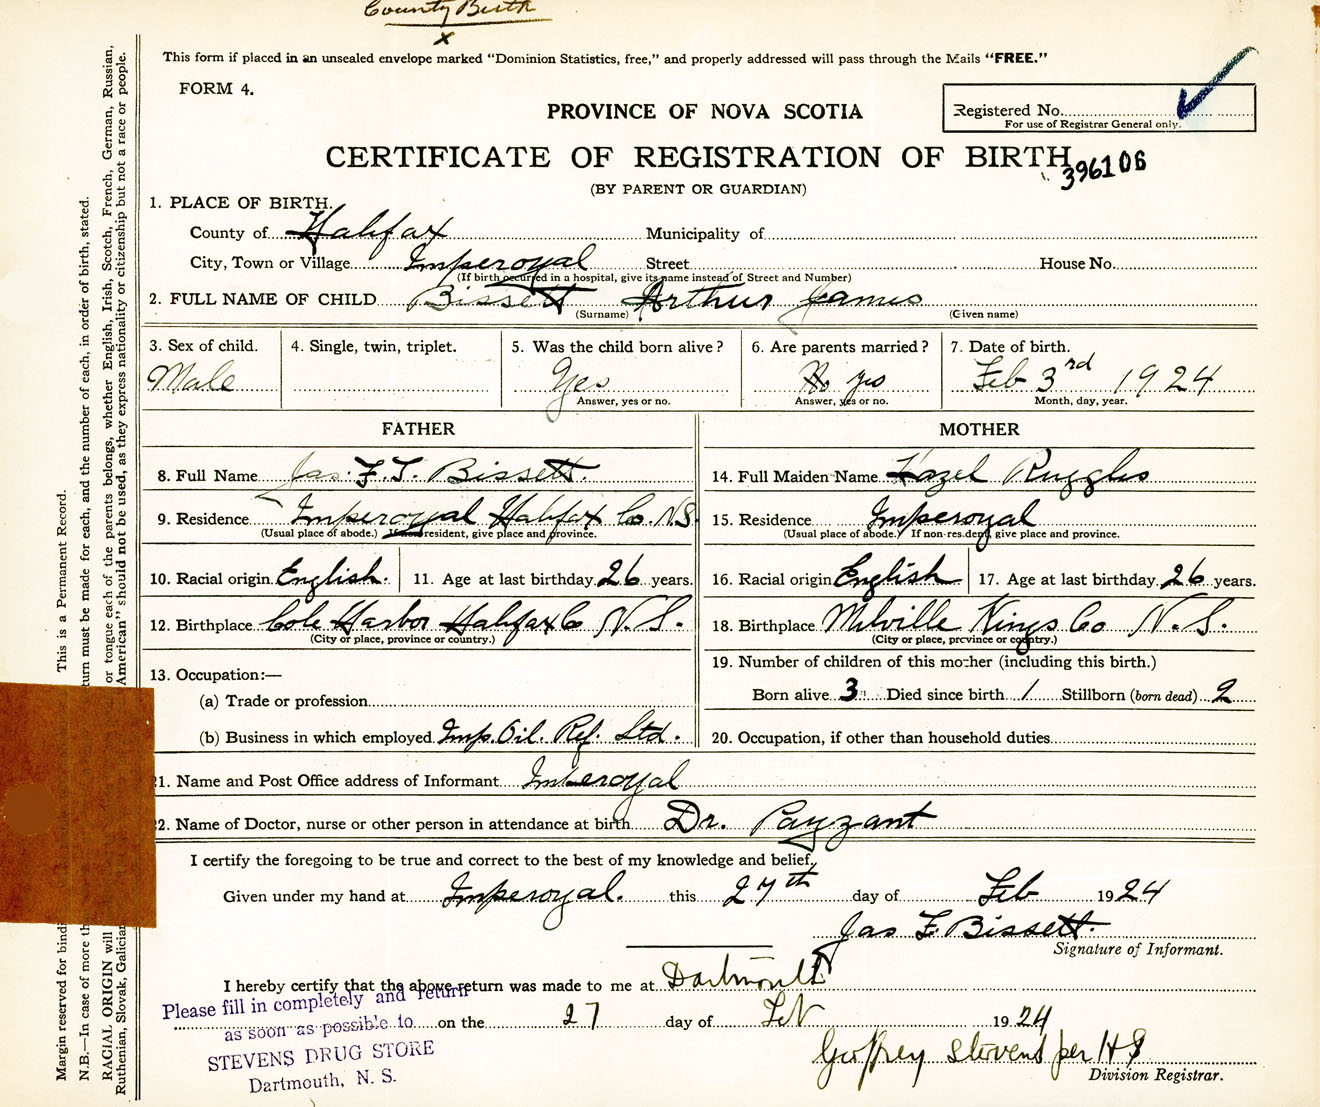 County Birth
x
This form if placed in an unsealed envelope marked "Dominion Statistics, free," and properly addressed will pass through the Mails "FREE."
FORM 4.
PROVINCE OF NOVA SCOTIA
Registered No.
For use of Registrar General only.
CERTIFICATE OF REGISTRATION OF BIRTH
396106
(BY PARENT OR GUARDIAN)
1. PLACE OF BIRTH.
County of Halifax Municipality of
City, Town or Village Imperoyal Street House No.
(If birth occurred in a hospital, give its name instead of Street and Number)
2. FULL NAME OF CHILD Bissett Arthur James
(Surname) (Given name)
3. Sex of child. 4. Single, twin, triplet. 5. Was the child born alive? 6. Are parents married? 7. Date of birth.
Male Yes No yes Feb 3rd 1924
Answer, yes or no. Answer, yes or no. Month, day, year.
FATHER MOTHER
8. Full Name Jas. F. T. Bissett. 14. Full Maiden Name Hazel Ruggles
9. Residence Imperoyal Halifax Co. N.S. 15. Residence Imperoyal
(Usual place of abode.) If non-resident, give place and province. (Usual place of abode.) If non-resident, give place and province.
10. Racial origin English. 11. Age at last birthday 26 years. 16. Racial origin English 17. Age at last birthday 26 years.
12. Birthplace Cole Harbor Halifax Co N.S. 18. Birthplace Milville Kings Co N.S.
(City or place, province or country.) (City or place, province or country.)
13. Occupation:— 19. Number of children of this mother (including this birth.)
(a) Trade or profession Born alive 3 Died since birth 1 Stillborn (born dead) 2
(b) Business in which employed Imp. Oil. Ref. Ltd. 20. Occupation, if other than household duties
21. Name and Post Office address of Informant Imperoyal
22. Name of Doctor, nurse or other person in attendance at birth Dr. Payzant
I certify the foregoing to be true and correct to the best of my knowledge and belief,
Given under my hand at Imperoyal. this 27th day of Feb 1924
Jas F Bissett.
Signature of Informant.
I hereby certify that the above return was made to me at Dartmouth
on the 27 day of Feb 1924
Geoffrey Stevens per HS
Division Registrar.
Please fill in completely and return
as soon as possible to
STEVENS DRUG STORE
Dartmouth, N. S.
Margin reserved for bindi This is a Permanent Record.
N.B.—In case of more th turn must be made for each, and the number of each, in order of birth, stated.
RACIAL ORIGIN will or tongue each of the parents belongs, whether English, Irish, Scotch, French, German, Russian,
Ruthenian, Slovak, Galician American" should not be used, as they express nationality or citizenship but not a race or people.